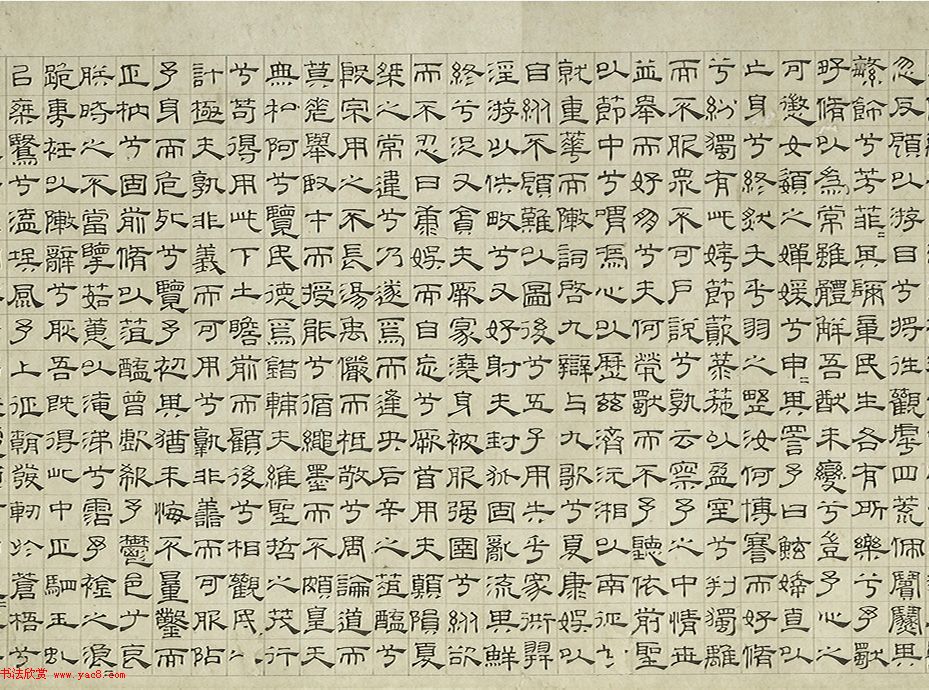 忽反顧以游目兮将往觀虖四荒佩繽紛其
繁飾兮芳菲〻其彌章民生各有所樂兮予獨
好脩以為常雖體解吾猷未變兮豈予心之
可懲女嬃之嬋媛兮申〻其詈予曰鮌婞直以
亡身兮終然夭乎羽之野汝何博謇而好脩
兮紛獨有此姱節薋菉葹以盈室兮判獨離
而不服衆不可戶說兮孰云察予之中情世
並舉而好朋兮夫何煢獨而不予聽依前聖
以節中兮喟馮心以歷茲濟沅湘以南征兮
就重華而陳詞啓九辯与九歌兮夏康娛以
自縱不顧難以圖後兮五子用失乎家衖羿
淫游以佚畋兮又好射夫封狐固亂流其鮮
終兮浞又貪夫厥家澆身被服强圉兮縱欲
而不忍日康娛而自忘兮厥首用夫顛隕夏
桀之常違兮乃遂焉而逢殃后辛之菹醢兮
殷宗用之不長湯禹儼而祗敬兮周論道而
莫差舉賢才而授能兮循繩墨而不頗皇天
無私阿兮覽民德焉錯輔夫維聖哲之茂行
兮苟得用此下土瞻前而顧後兮相觀民之
計極夫孰非義而可用兮孰非善而可服阽
予身而危死兮覽予初其猶未悔不量鑿而
正枘兮固前脩以菹醢曾歔欷予鬱邑兮哀
朕時之不當攬茹蕙以淹涕兮霑予襟之浪
跪專衽以陳辭兮耿吾既得此中正駟玉虬
以乘鷖兮溘埃風予上征朝發軔於蒼梧兮
书法欣赏 www.yac8.com